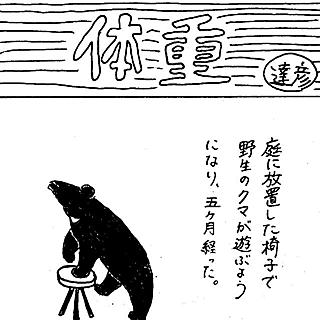 体重
達彦
庭に放置した椅子で
野生のクマが遊ぶよう
になり、五ヶ月経った。